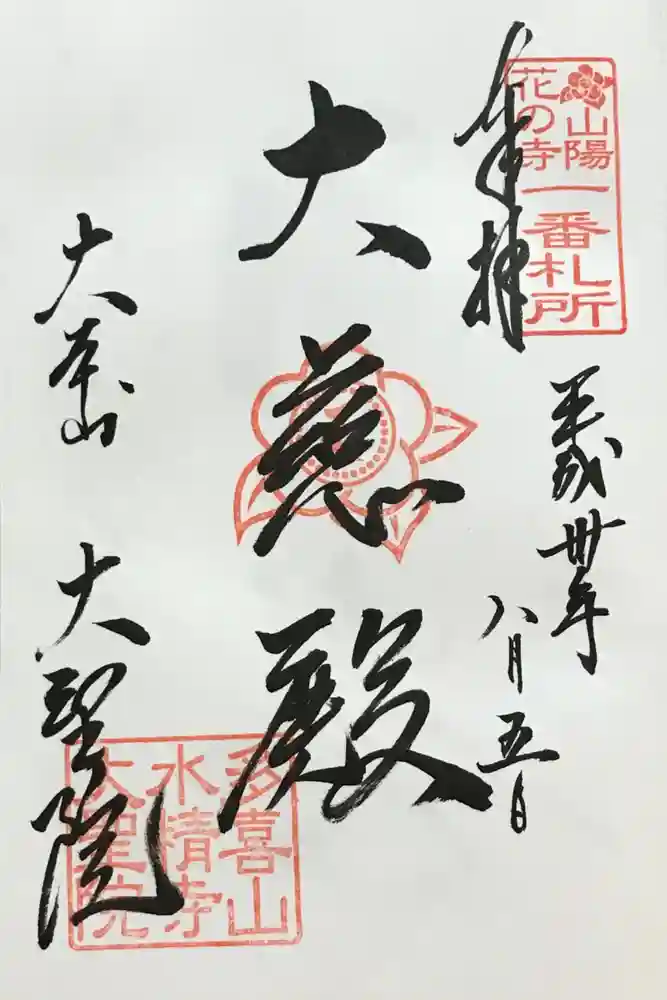 山陽
花の寺
一番札所
奉拝
平成卅年
八月五日
大慈殿
大本山 大聖院
多喜山
水精寺
大聖院